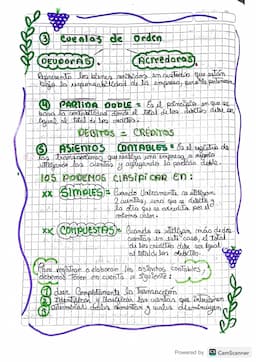 ③ Cuentas de Orden
DEUDORAS. ACREEDORAS.
Representa los bienes recibidos en custodia que están
bajo la responsabilidad de la empresa, pero le pertenecen
④ PARTIDA DOBLE = Es el principio en que se
basa la contabilidad donde el total de los débitos debe ser
igual al total de los créditos.
DEBITOS = CREDITOS
⑤ ASIENTOS CONTABLES = Es el registro de
las transacciones que realiza una empresa
utilizando las cuentas y aplicando la partida doble.
LOS PODEMOS CLASIFICAR EN:
xx SIMPLES = Cuando Únicamente se utilizan
2 cuentas, una que se debita y
la otra que se acredita por el
mismo valor.
xx COMPUESTAS = Cuando se utilizan más de dos
cuentas en este caso, el total
de los créditos debe ser igual
al total de los débitos.
Para registrar o elaborar los asientos contables
debemos tener en cuenta lo siguiente:
① Leer Completamente la Transacción
② Identificar y clasificar las cuentas que intervienen
③ aumentan y cuales disminuyen
Powered by CamScanner